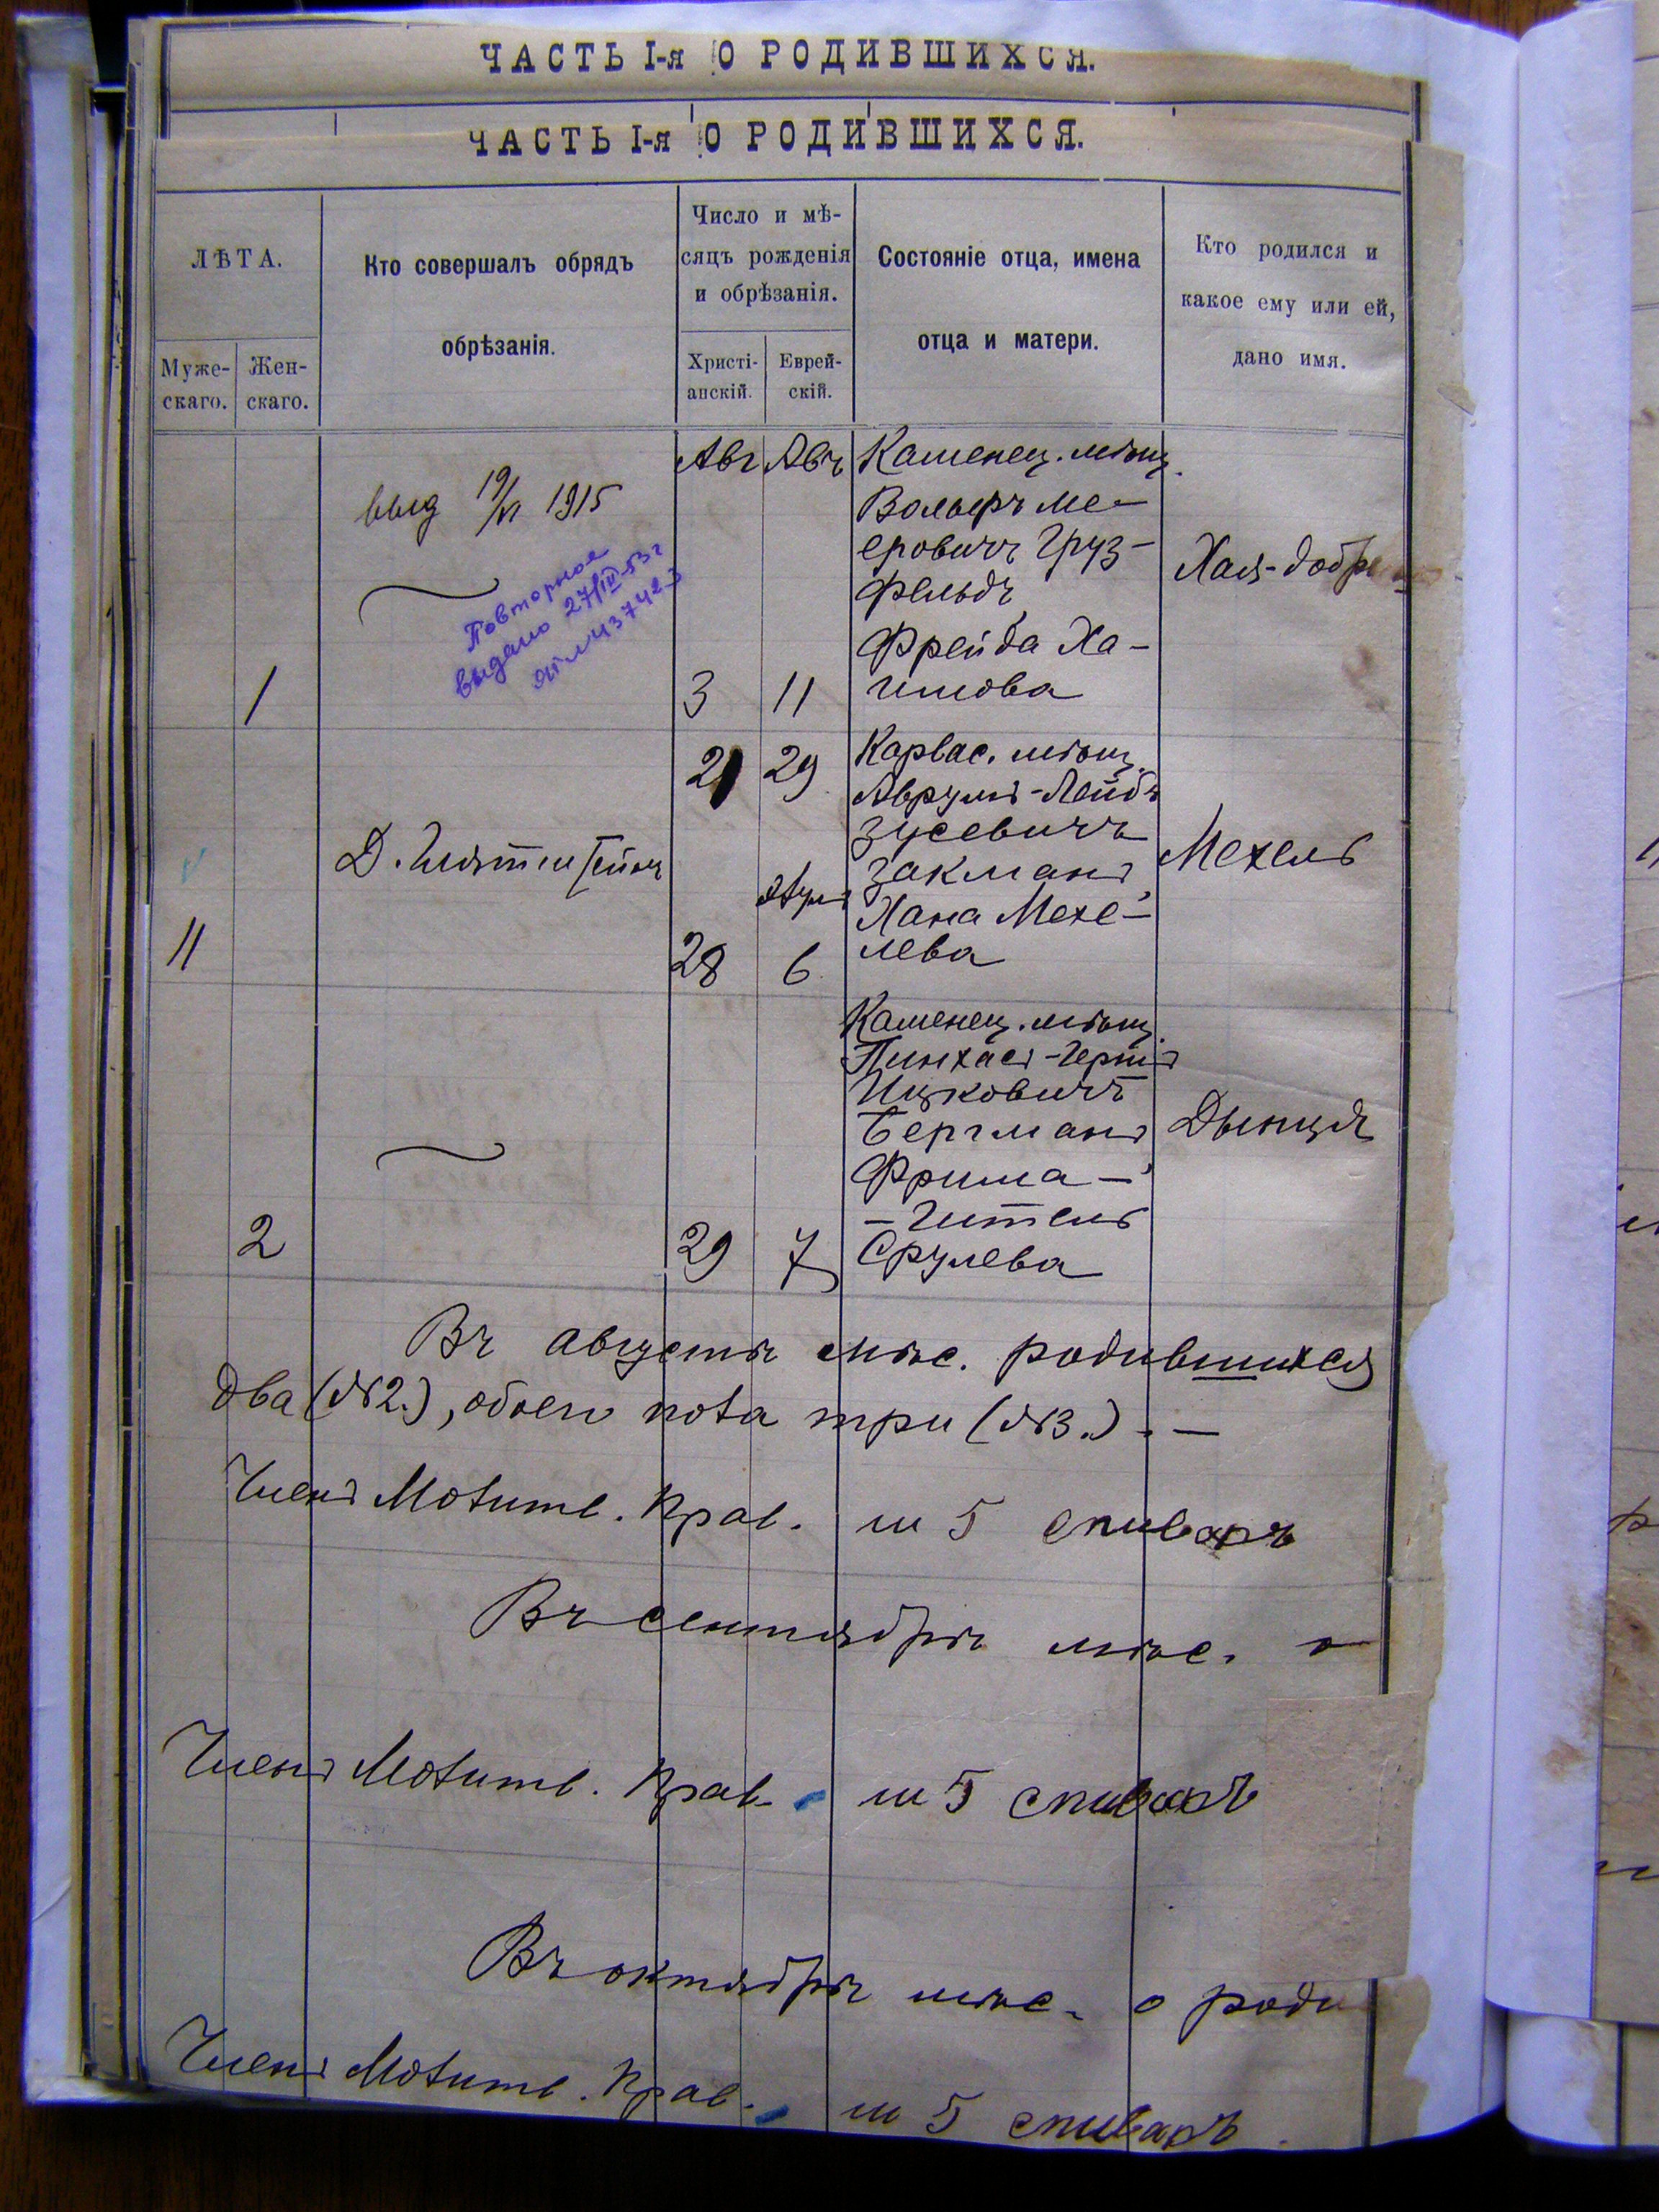 ЧАСТЬ I-я О РОДИВШИХСЯ.
ЧАСТЬ I-я О РОДИВШИХСЯ.
ЛѢТА.
Муже-
скаго.
Жен-
скаго.
Кто совершалъ обрядъ
обрѣзанія.
Число и мѣ-
сяцъ рожденія
и обрѣзанія.
Христі-
анскій.
Еврей-
скій.
Состояніе отца, имена
отца и матери.
Кто родился и
какое ему или ей,
дано имя.
Авг Авъ
выд 19/VI 1915
Повторное
выдано 27/III-53г
1
3
11
Каменец. мѣщ.
Вольфъ Ме-
еровичъ Груз-
фельдъ
Фрейда Ха-
имова
Хая-Добр
11
28
21 29
6
Карвас. мѣщ.
Аврумъ-Лейбъ
Зусевичъ
Закманъ,
Хана Мехе-
лева
Мехель
2
29
7
Каменец. мѣщ.
Пинхасъ-Герш
Ицковичъ
Бергманъ
Фрима-
-Гитель
Срулева
Двинця
Въ августѣ мѣс. родившихся
два (№2.), обоего пола три (№3.). —
Членъ Молитв. Прав. Спиваръ
Въ сентябрѣ мѣс. о
Членъ Молитв. Прав. Спиваръ
Въ октябрѣ мѣс. о роди
Членъ Молитв. Прав. Спиваръ